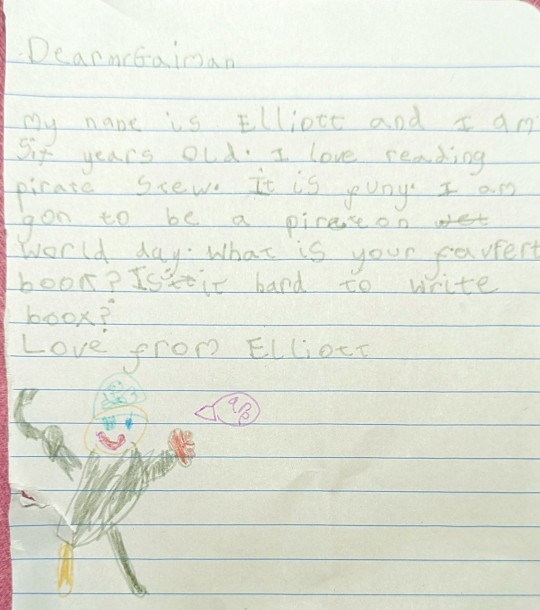 Dear mr Gaiman
My name is Elliott and I am
Six years old. I love reading
pirate Stew. It is funy. I am
gon to be a pirate on
world day. What is your favfert
book? Is it hard to write
boox?
Love from Elliott